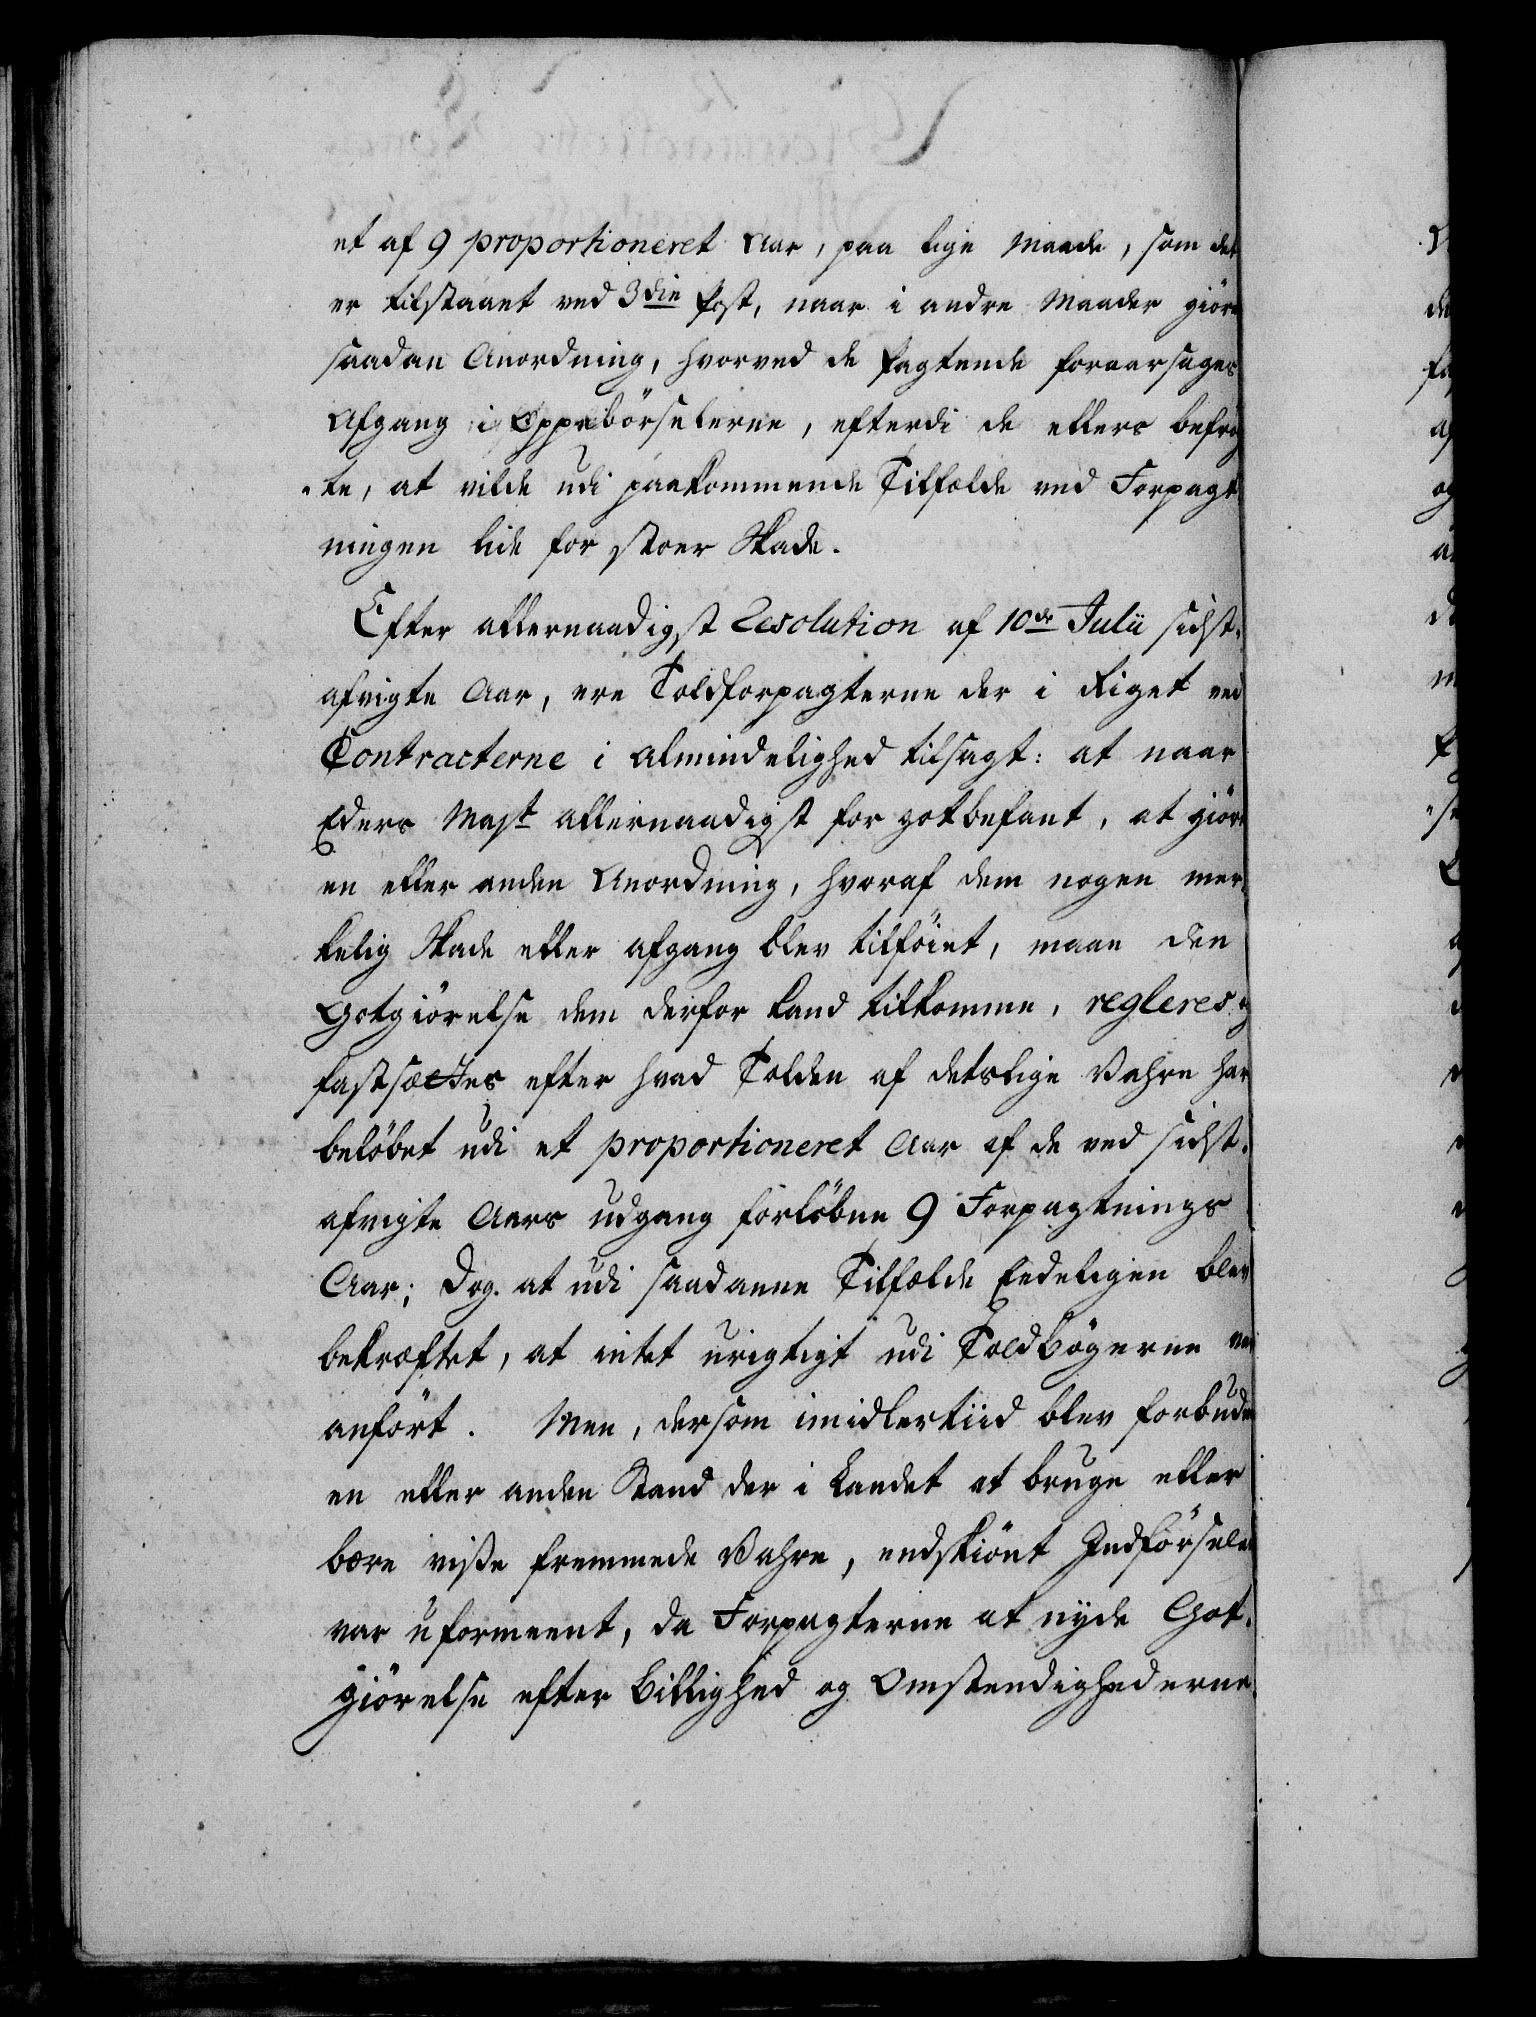 et af 9 proportioneret Aar, paa lige Maade, som det
er tilstaaet ved 3die Post, naar i andre Maader giöres
saadan Anordning, hvorved de Pagtende foraarsages
Afgang i Oppebörselerne, efterdi de ellers befrög
te, at vilde udi paakommende Tilfælde ved Forpagt
ningen lide for stoer Skade.
Efter allernaadigst Resolution af 10de Julii sidst
afvigte Aar, ere Toldforpagterne der i Riget ved
Contracterne i Almindelighed tilsagt: at naar
Eders Mayt allernaadigst for got befant, at giöre
en eller anden Anordning, hvoraf dem nogen mer
kelig Skade eller afgang blev tilföiet, maae den
Gotgiörelse dem derfor kand tilkomme, regleres og
fastsættes efter hvad Tolden af deslige Vahre har
belöbet udi et proportioneret Aar af de ved sidst
afvigte Aars udgang forlöbne 9 Forpagtnings
Aar; Dog at udi saadanne Tilfælde Eedeligen blev
bekræftet, at intet urigtigt udi Toldbögerne var
anfört. Men, dersom imidlertiid blev forbuden
en eller anden Stand der i Landet at bruge eller
bære visse fremmede Vahre, endskiönt Indförselen
var uformeent, da Forpagterne at nyde Got
giörelse efter Billighed og Omstendighederne.